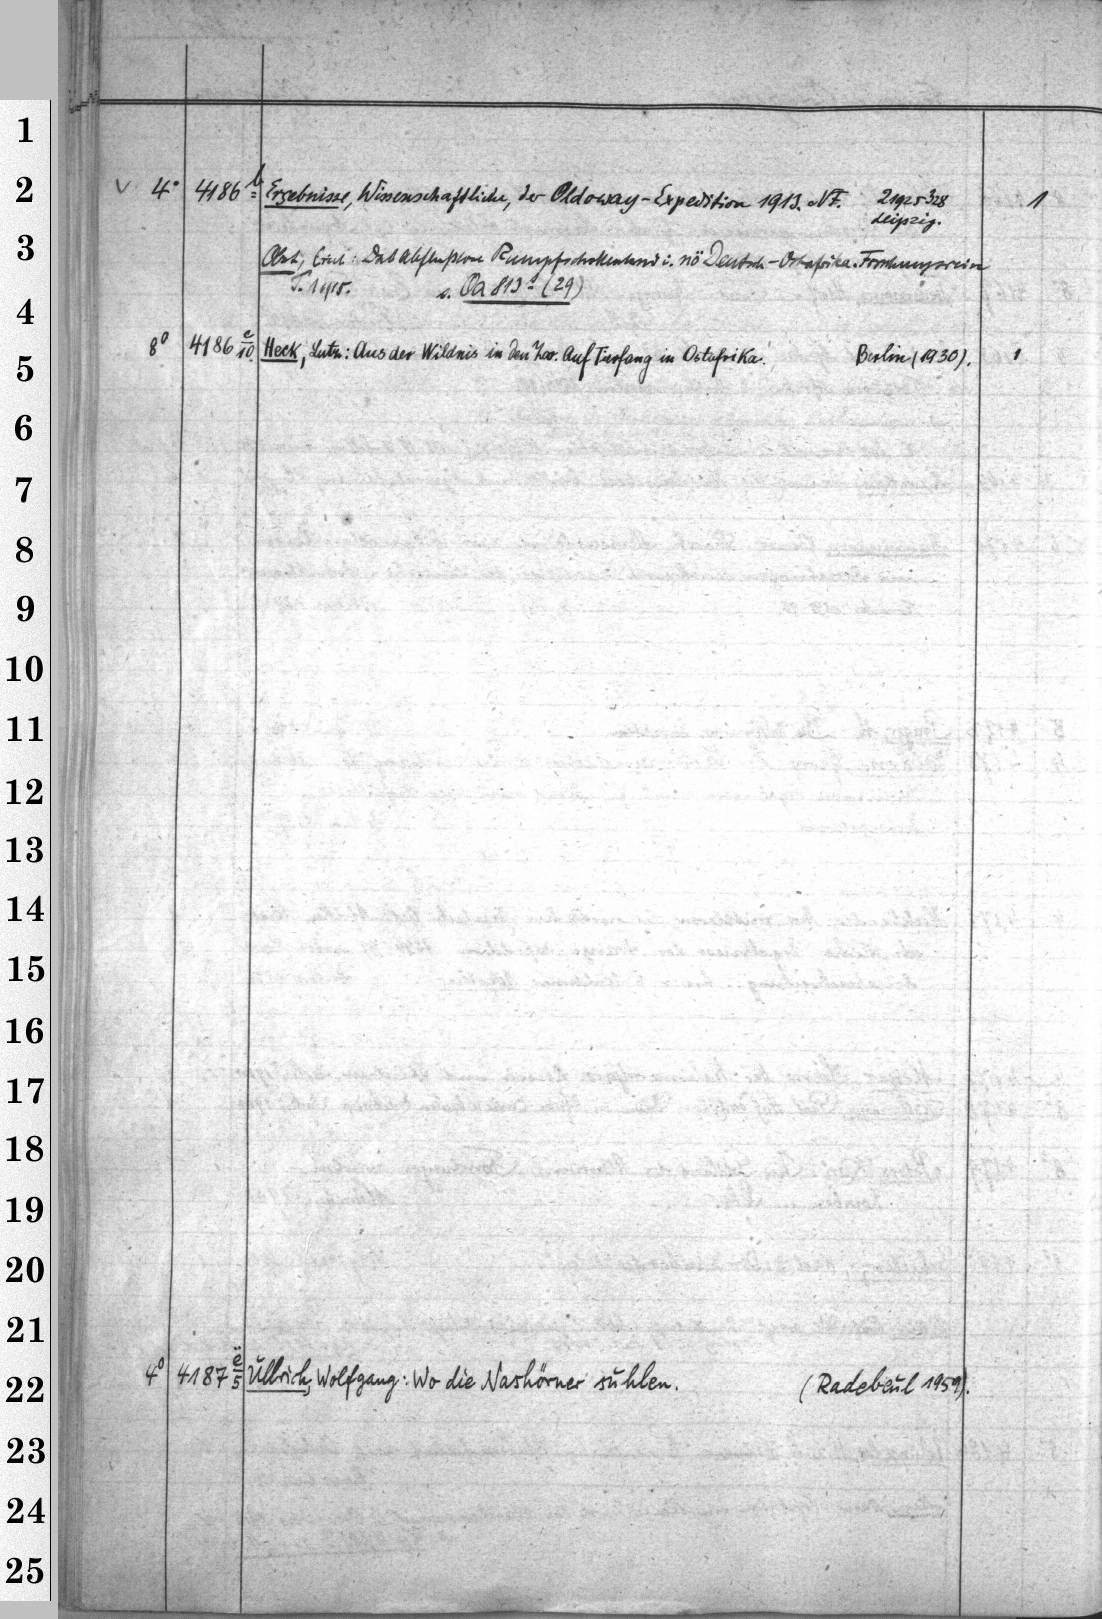 1
2
V 4° 4186 b Ergebnisse, Wissenschaftliche, der Oldoway-Expedition 1913. NF. 2 1925 328 1
Leipzig.
3
Obst, Erich: Das abflußlose Rumpfschollenland i. nö Deutsch-Ostafrika. Forschungsreise
T. 1 1915. s. Pa 813 (29)
4
8° 4186 e/10 Heck, Lutz: Aus der Wildnis in den Zoo. Auf Tierfang in Ostafrika. Berlin (1930). 1
5
6
7
8
9
10
11
12
13
14
15
16
17
18
19
20
21
4° 4187 ë/5 Ullrich, Wolfgang: Wo die Nashörner suhlen. (Radebeul 1959).
22
23
24
25